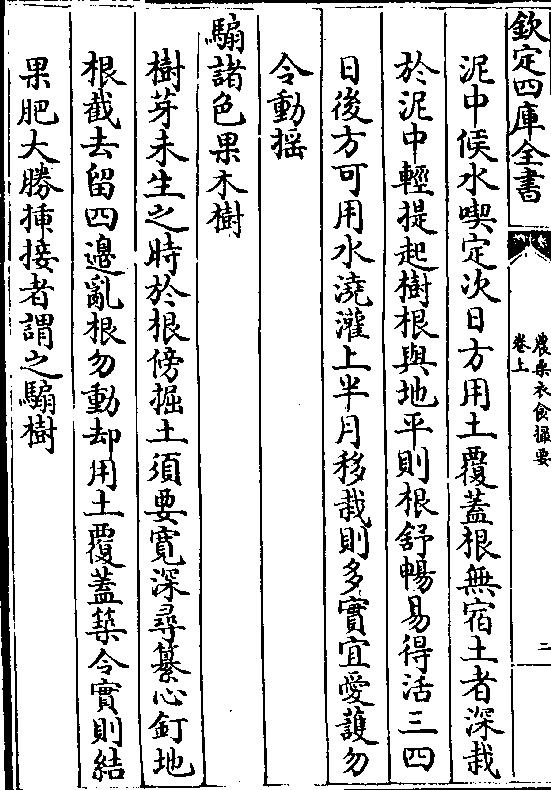 欽定四庫全書
農桑衣食撮要
卷上
二
泥中候水喫定次日方用土覆蓋根無宿土者深栽
於泥中輕提起樹根與地平則根舒暢易得活三四
日後方可用水澆灌上半月移栽則多實宜愛護勿
令動揺
騸諸色果木樹
樹芽未生之時於根傍掘土須要寛深尋纂心釘地
根截去留四邉亂根勿動却用土覆蓋築令實則結
果肥大勝揷接者謂之騸樹